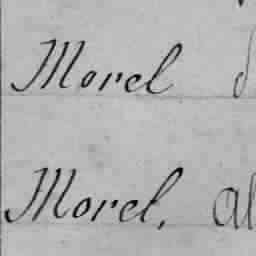 Morel
Morel, al